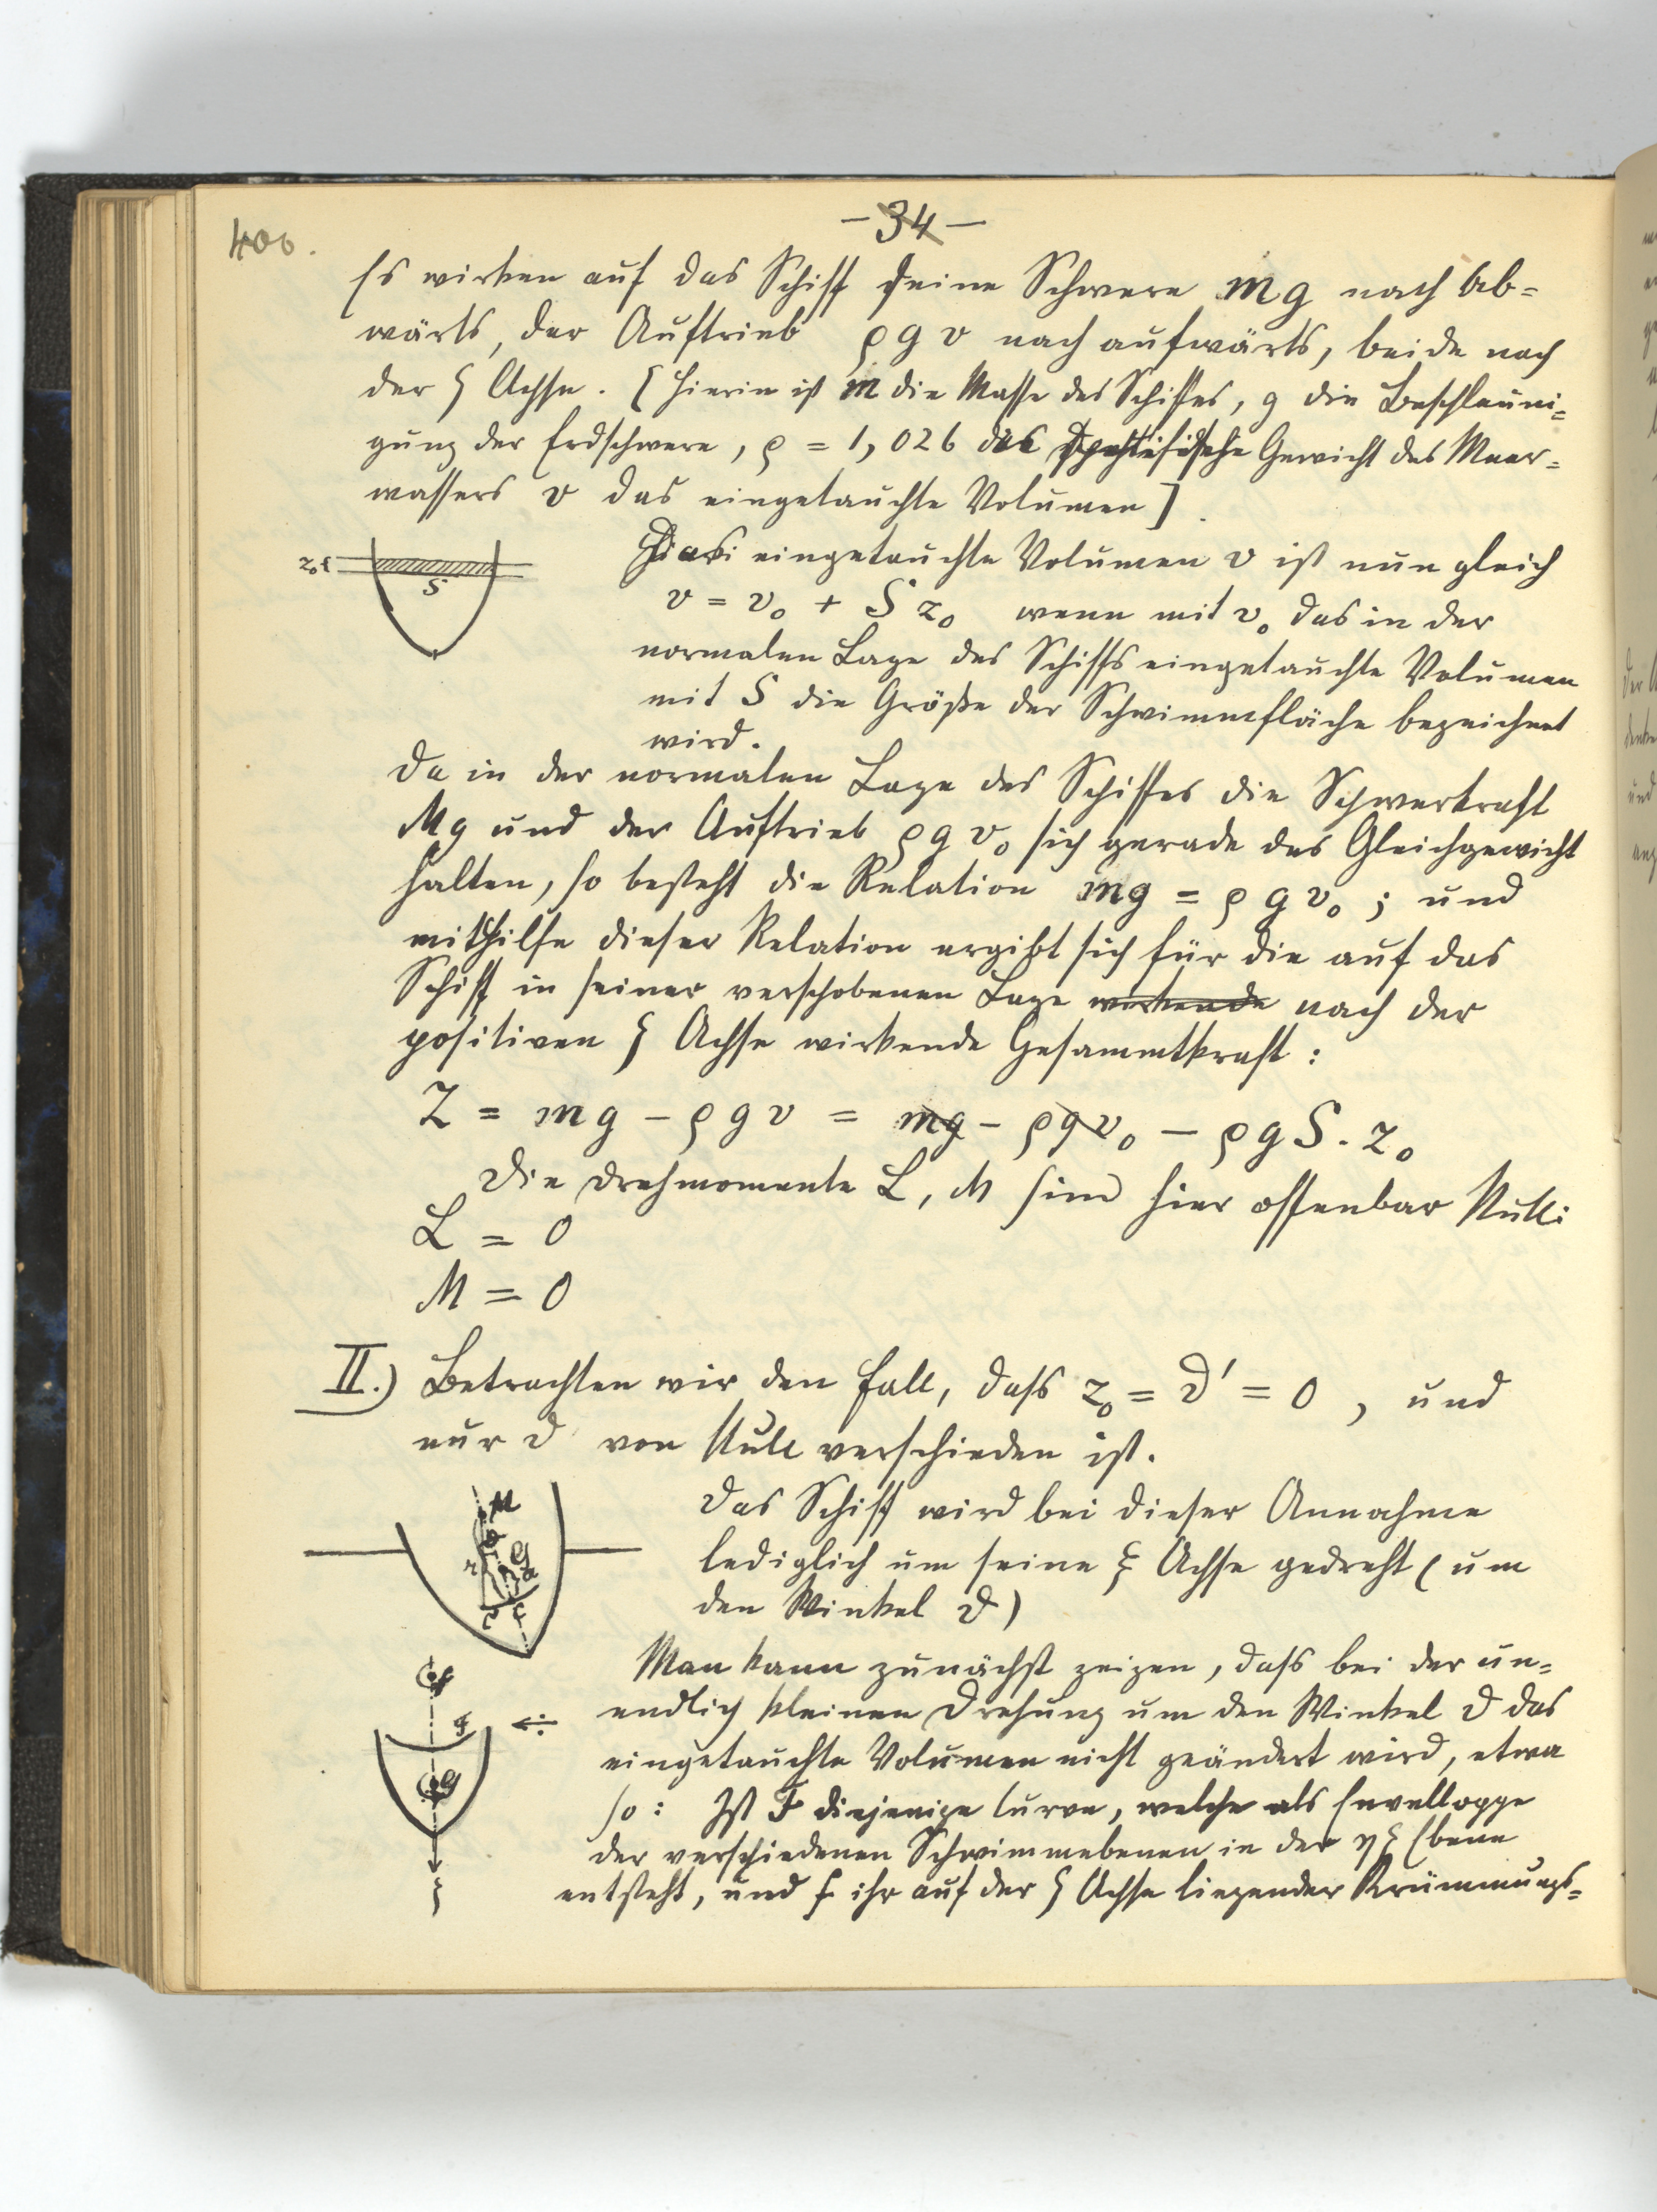 400.
- 34 -
Es wirken auf das Schiff seine Schwere mg nach Ab=
wärts, der Auftrieb ρgv nach aufwärts, beide nach
der ζ Achse. [Hierin ist m die Masse des Schiffes, g die Beschleuni=
gung der Erdschwere, ρ = 1,026 das spezifische Gewicht des Meer=
wassers v das eingetauchte Volumen].
z₀{
S
eingetauchte Volumen v ist nun gleich
v = v₀ + S z₀ wenn mit v₀ das in der
normalen Lage des Schiffs eingetauchte Volumen
mit S die Größe der Schwimmfläche bezeichnet
wird.
Da in der normalen Lage des Schiffes die Schwerkraft
Mg und der Auftrieb ρgv₀ sich gerade das Gleichgewicht
halten, so besteht die Relation mg = ρgv₀; und
mithilfe dieser Relation ergibt sich für die auf das
Schiff in seiner verschobenen Lage wirkende nach der
positiven ζ Achse wirkende Gesammtkraft:
Z = mg - ρgv = mg - ρgv₀ - ρgS·z₀
Die Drehmomente L, M sind hier offenbar Null:
L = 0
M = 0
II.) Betrachten wir den Fall, dass z₀ = ϑ' = 0, und
nur ϑ von Null verschieden ist.
Das Schiff wird bei dieser Annahme
lediglich um seine ξ Achse gedreht (um
den Winkel ϑ)
M
Man kann zunächst zeigen, dass bei der un=
endlich kleinen Drehung um den Winkel ϑ das
eingetauchte Volumen nicht geändert wird, etwa
so: Ist F diejenige Curve, welche als Enveloppe
der verschiedenen Schwimmebenen in der ηζ Ebene
entsteht, und f ihr auf der ζ Achse liegender Krümmungs=
F
G
ζ